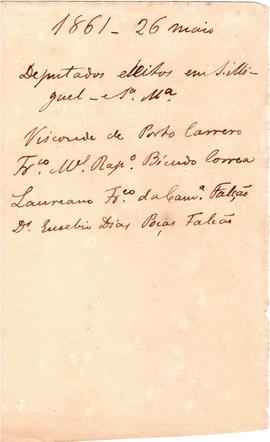 1861 - 26 maio
Deputados eleitos em S. Mi-
guel - e Sta. Ma.
Visconde de Porto Carrero
Frco. Ml. Rapo. Bicudo Correa
Laureano Frco. da Cama. Falcão
Dr. Eusebio Dias Poças Falcão